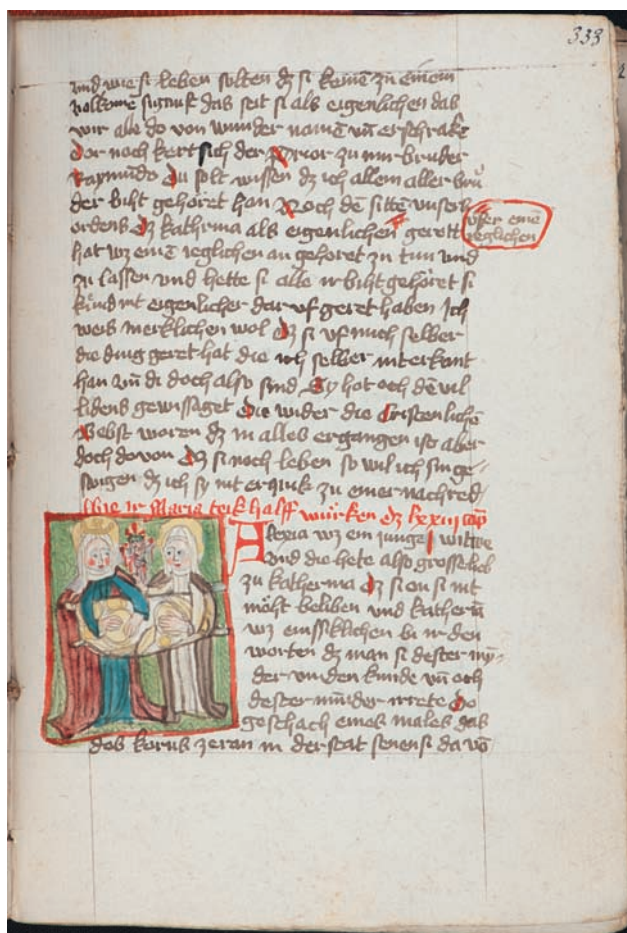 333
und wie si leben solten dz si keinē zu einem
volkome
das seit si als eigenlichen das
wir alle do von wunder namē vñ erschrakē
Dor noch kert sich der Prior zu mir bruder
Raymūdo Du solt wissen dz ich allem aller brů
der biht gehöret han Noch dē sittē unsers
ordens Dz katherina als eigenlichen gerett
über einē
reglichen
hat wz einē ieglichen an gehöret zu tun und
zu lassen und hette si alle ir biht gehöret si
künd nit eigenlicher dar uf geret haben Ich
weis merklichen wol Dz si uf mich selber
die ding geret hat die ich selber nit erkant
han vñ di doch also sind Sy hat och dē vil
lidens gewissaget Die wider die Cristenlichē
Bebst woren Dz in alles ergangen ist aber
doch dovon Dz si noch leben so wil ich sin ge
swigen dz ich sy nit erquik zu einer nachred
Wie ir Maria teik half würken dz lxxiii cap
Alexia wz ein junge witwe
und die hete also grosse lieb
zu katherina Dz si on si nit
möht beliben und katherīa
wz emssiklichen bi ir den
worten dz man si dester mȳ
der vnden kunde vñ och
dester minder irrete Do
geschach eines males das
das korns zeran in der stat senensi da vō